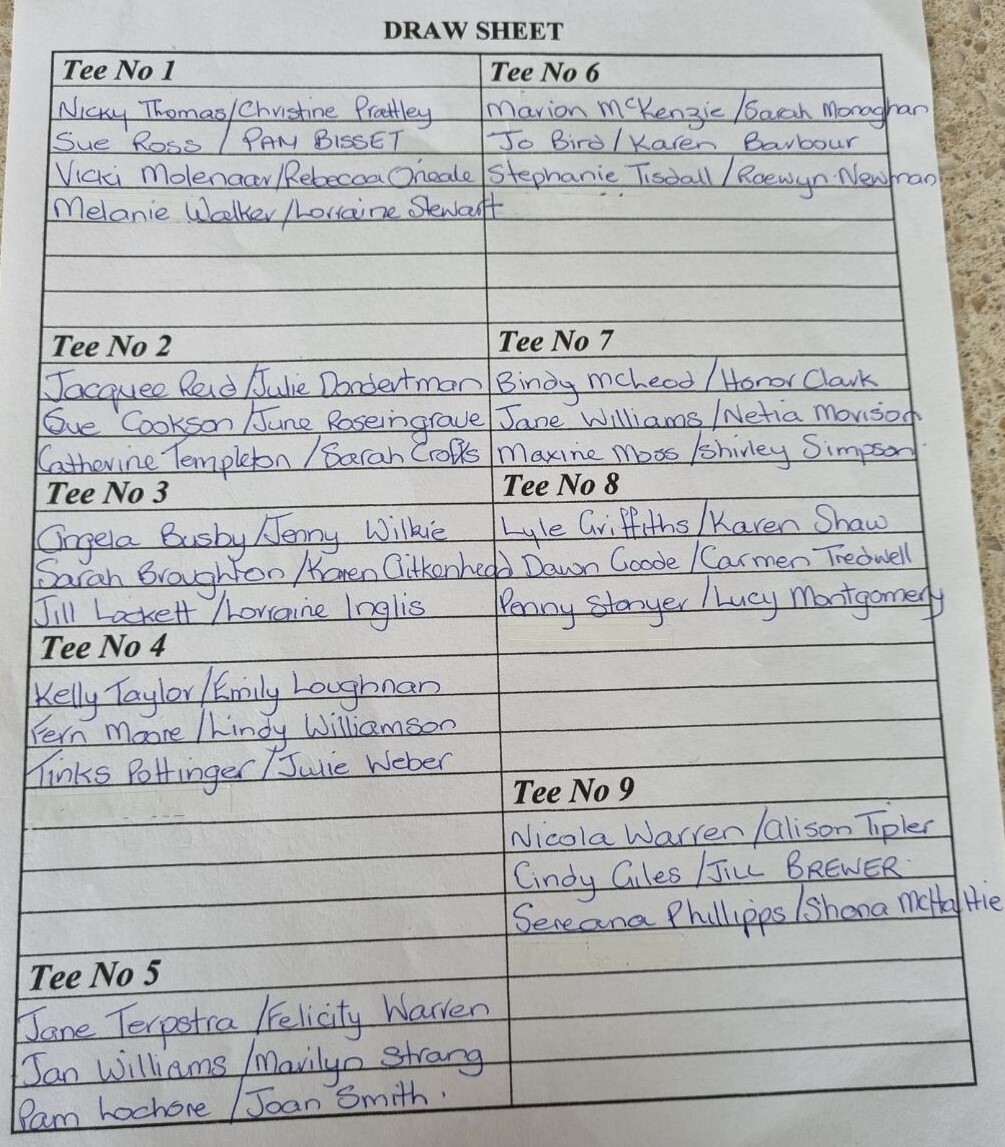 DRAW SHEET
Tee No 1
Nicky Thomas/Christine Prattley
Sue Ross / PAM BISSET
Vicki Molenaar/Rebecca Oneale
Melanie Walker/Lorraine Stewart
Tee No 2
Jacquee Reid/Julie Dondertman
Sue Cookson/June Roseingrave
Catherine Templeton/Sarah Crofts
Tee No 3
Angela Busby/Jenny Wilkie
Sarah Broughton/Karen Aitkenhead
Jill Lockett/Lorraine Inglis
Tee No 4
Kelly Taylor/Emily Loughnan
Fern Moore/Lindy Williamson
Tinks Pottinger/Julie Weber
Tee No 5
Jane Terpstra/Felicity Warren
Jan Williams/Marilyn Strang
Pam Lochore/Joan Smith.
Tee No 6
Marion McKenzie/Sarah Monaghan
Jo Bird/Karen Barbour
Stephanie Tisdall/Raewyn Newman
Tee No 7
Bindy McLeod/Honor Clark
Jane Williams/Netia Morison
Maxine Moos/Shirley Simpson
Tee No 8
Lyle Griffiths/Karen Shaw
Dawn Goode/Carmen Tredwell
Penny Stonyer/Lucy Montgomery
Tee No 9
Nicola Warren/Alison Tipler
Cindy Giles/JILL BREWER
Sereana Phillipps/Shona McHattie